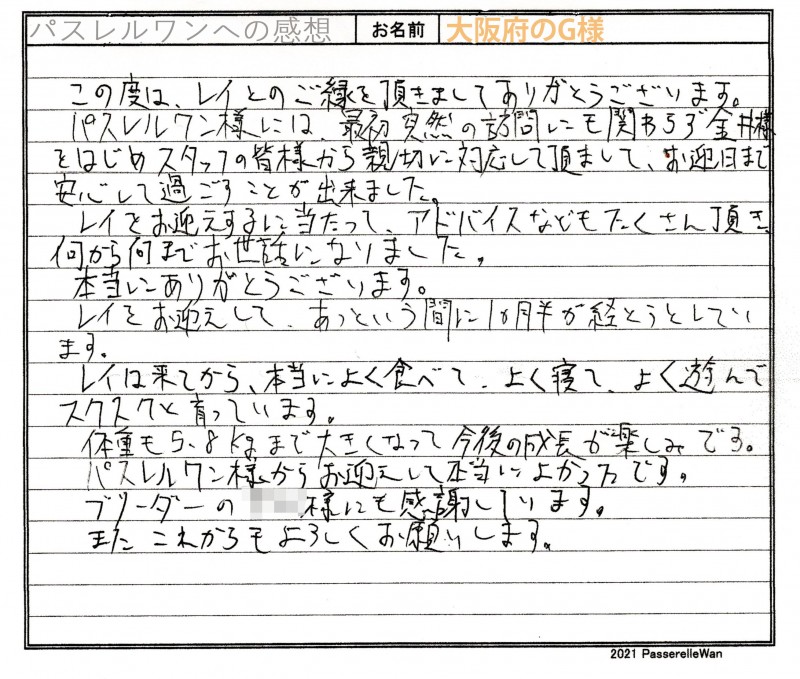 パスレルワンへの感想 お名前 大阪府のG様
この度は、レイとのご縁を頂きましてありがとうございます。
パスレルワン様には、最初突然の訪問にも関わらず金井様
をはじめスタッフの皆様から親切に対応して頂まして、お迎日まで
安心して過ごすことが出来ました。
レイをお迎えするに当たって、アドバイスなどもたくさん頂き、
何から何までお世話になりました。
本当にありがとうございます。
レイをお迎えして、あっという間に1か月半が経とうとしてい
ます。
レイは来てから、本当によく食べて、よく寝て、よく遊んで
スクスクと育っています。
体重も5.8kgまで大きくなって今後の成長が楽しみです。
パスレルワン様からお迎えして本当によかったです。
ブリーダーの 様にも感謝しています。
またこれからもよろしくお願いします。
2021 PasserelleWan